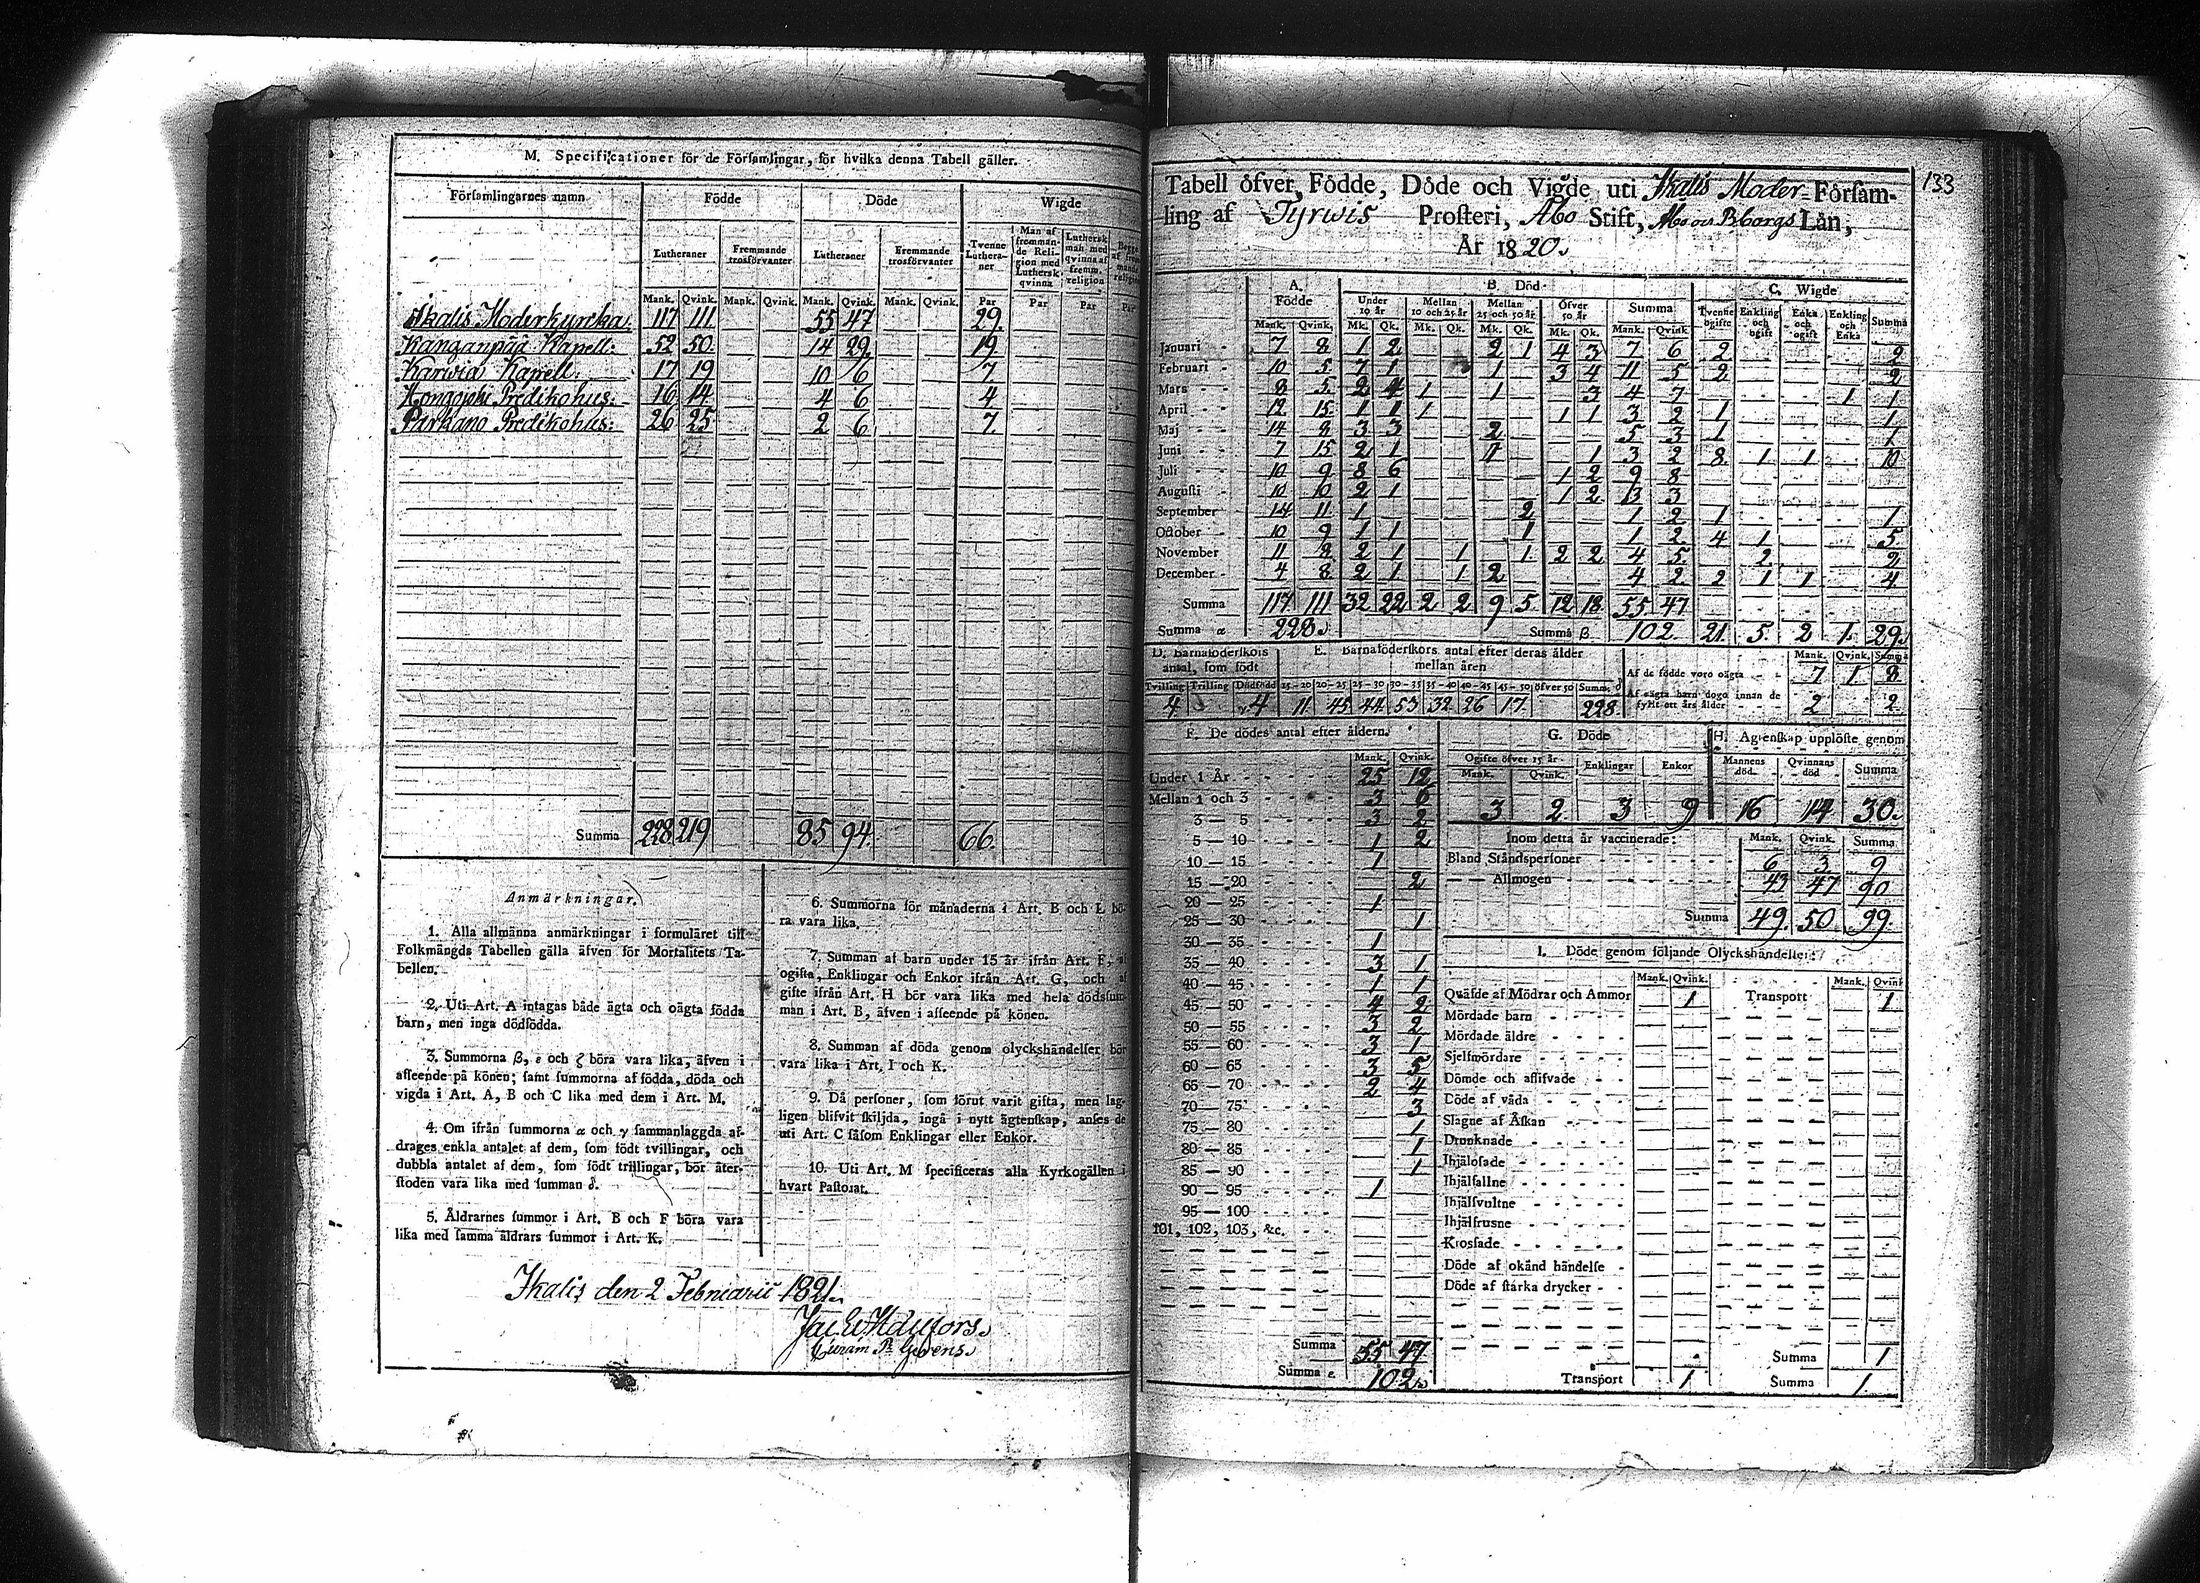 M. Specificationer för de Församlingar, för hvilka denna Tabell gäller.
Församlingarnes namn Födde Döde Wigde
Lutheraner Fremmande trosförvanter Lutheraner Fremmande trosförvanter Tvenne Lutheraner Man af fremmande Religion med Luthersk qvinna Luthersk man med qvinna af fremm. religion
Mank. Qvink. Mank. Qvink. Mank. Qvink. Mank. Qvink. Par Par Par Par
Ikalis Moderkyrcka: 117 111 55 47 29.
Kanganpää Kapell: 52 50 14 29 19.
Karwia Kapell: 17 19 10 6 7.
Hongojoki Predikohus: 16 14 4 6 4
Parkano Predikohus: 26 25 2 6 7.
Summa 228 219 85 94. 66.
Anmärkningar.
1. Alla allmänna anmärkningar i formuläret till
Folkmängds Tabellen gälla äfven för Mortalitets Ta-
bellen.
2. Uti Art. A intagas både ägta och oägta födda
barn, men inga dödfödda.
3. Summorna β, ε och ζ böra vara lika, äfven i
afseende på könen; samt summorna af födda, döda och
vigda i Art. A, B och C lika med dem i Art. M.
4. Om ifrån summorna α och γ sammanlaggda af-
drages enkla antalet af dem, som födt tvillingar, och
dubbla antalet af dem, som födt trillingar, bör åter-
stoden vara lika med summan δ.
5. Åldrarnes summor i Art. B och F böra vara
lika med samma åldrars summor i Art. K.
6. Summorna för månaderna i Art. B och L bö-
ra vara lika.
7. Summan af barn under 15 år ifrån Art. F,
ogifta, Enklingar och Enkor ifrån Art. G, och af
gifte ifrån Art. H bör vara lika med hela dödssum-
man i Art. B, äfven i afseende på könen.
8. Summan af döda genom olyckshändelser bör
vara lika i Art. I och K.
9. Då personer, som förut varit gifta, men lag-
ligen blifvit skiljda, ingå i nytt ägtenskap, anses de
uti Art. C såsom Enklingar eller Enkor.
10. Uti Art. M specificeras alla Kyrkogällen i
hvart Pastorat.
Ikalis den 2 Februarii 1821.
133
Tabell öfver Födde, Döde och Vigde uti Ikalis Moder-Försam-
ling af Tyrwis Prosteri, Åbo Stift, Åbo och Bborgs Län,
År 1820.
A. Födde B. Död C. Wigde
Under 10 år Mellan 10 och 25 år Mellan 25 och 50 år Öfver 50 år Summa Tvenne ogifte Enkling och ogift Enka och ogift Enkling och Enka Summa
Mank. Qvink. Mk. Qk. Mk. Qk. Mk. Qk. Mk. Qk. Mank. Qvink.
Januari 7 8 1 2 2 1 4 3 7 6 2 2
Februari 10 5 7 1 1 3 4 11 5 2 2
Mars 8 5 2 4 1 1 3 4 7 1 1
April 12 15 1 1 1 1 1 3 2 1 1
Maj 14 8 3 3 2 5 3 1 1
Juni 7 15 2 1 1 1 3 2 8 1 1 10
Juli 10 9 8 6 1 2 9 8
Augusti 10 10 2 1 1 2 3 3
September 14 11 1 2 1 2 1 1
October 10 9 1 1 1 1 2 4 1 5
November 11 8 2 1 1 1 2 2 4 5 2 2
December 4 8 2 1 1 2 4 2 2 1 1 4
Summa 117 111 32 22 2 2 9 5 12 18 55 47
Summa α 228. Summa β 102 21 5 2 1 29
D. Barnaföderskors antal, som födt E. Barnaföderskors antal efter deras ålder mellan åren Mank. Qvink. Summa
Tvilling Trilling Dödfödd 15-20 20-25 25-30 30-35 35-40 40-45 45-50 öfver 50 Summa δ
4 4 11 45 44 53 32 26 17 228
Af de födde voro oägta 7 1 8
Af oägta barn dogo innan de fyllt ett års ålder 2 2
F. De dödes antal efter åldern.
Mank. Qvink.
Under 1 År 25 12
Mellan 1 och 3 3 6
3 — 5 3 2
5 — 10 1 2
10 — 15 1
15 — 20 2
20 — 25 1
25 — 30 1
30 — 35 1
35 — 40 3 1
40 — 45 1 1
45 — 50 4 2
50 — 55 3 2
55 — 60 3 1
60 — 65 3 5
65 — 70 2 4
70 — 75 3
75 — 80 1
80 — 85 1
85 — 90 1
90 — 95 1
95 — 100
101, 102, 103, &c.
Summa 55 47
Summa ε 102
G. Döde H. Ägtenskap upplöste genom
Ogifte öfver 15 år Enklingar Enkor Mannens död Qvinnans död Summa
Mank. Qvink.
3 2 3 9 16 14 30
Inom detta år vaccinerade: Mank. Qvink. Summa
Bland Ståndspersoner 6 3 9
— — Allmogen 43 47 90
Summa 49 50 99
I. Döde genom följande Olyckshändelser:
Mank. Qvink. Mank. Qvink
Quäfde af Mödrar och Ammor 1 Transport 1
Mördade barn
Mördade äldre
Sjelfmördare
Dömde och aflifvade
Döde af våda
Slagne af Åskan
Drunknade
Ihjälosade
Ihjälfallne
Ihjälsvultne
Ihjälfrusne
Krossade
Döde af okänd händelse
Döde af starka drycker
Summa 1
Transport 1 Summa 1